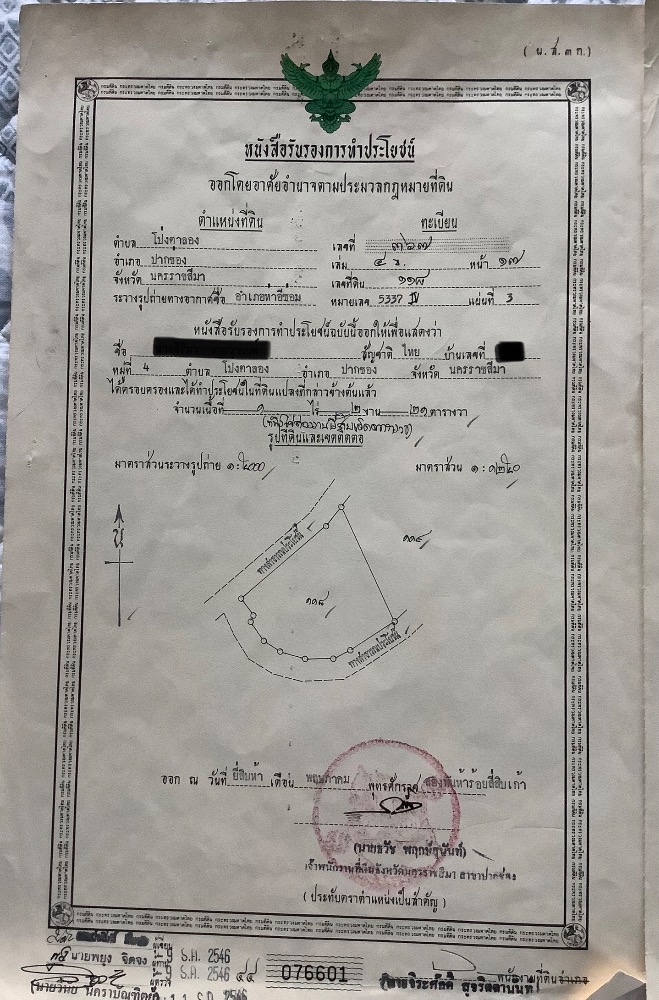 ( น.ส.๓ ก.)
หนังสือรับรองการทำประโยชน์
ออกโดยอาศัยอำนาจตามประมวลกฎหมายที่ดิน
ตำแหน่งที่ดิน ทะเบียน
ตำบล โป่งตาลอง เลขที่ ๓๖๗
อำเภอ ปากช่อง เล่ม ๔ ข. หน้า ๑๗
จังหวัด นครราชสีมา เลขที่ดิน ๑๑๘
ระวางรูปถ่ายทางอากาศชื่อ อำเภอท่าอีซ่อม หมายเลข 5337 IV แผ่นที่ 3
หนังสือรับรองการทำประโยชน์ฉบับนี้ออกให้เพื่อแสดงว่า
ชื่อ สัญชาติ ไทย บ้านเลขที่
หมู่ที่ 4 ตำบล โป่งตาลอง อำเภอ ปากช่อง จังหวัด นครราชสีมา
ได้ครอบครองและได้ทำประโยชน์ในที่ดินแปลงที่กล่าวข้างต้นแล้ว
จำนวนเนื้อที่ ๑ ไร่ ๒ งาน ๒๑ ตารางวา
รูปที่ดินและเขตติดต่อ
มาตราส่วนระวางรูปถ่าย ๑:๕๐๐๐ มาตราส่วน ๑ : ๑๒๕๐
น
ทางสาธารณประโยชน์
๑๑๙
๑๑๘
ทางสาธารณประโยชน์
ออก ณ วันที่ ยี่สิบห้า เดือน พฤษภาคม พุทธศักราช สองพันห้าร้อยสี่สิบเก้า
(นายธวัช พฤกษ์สุนันท์)
เจ้าพนักงานที่ดินจังหวัดนครราชสีมา สาขาปากช่อง
( ประทับตราตำแหน่งเป็นสำคัญ )
นายพยุง จิตจง
9 ธ.ค. 2546
9 ธ.ค. 2546 ๔๔ 076601
พนักงานที่ดินอำเภอ